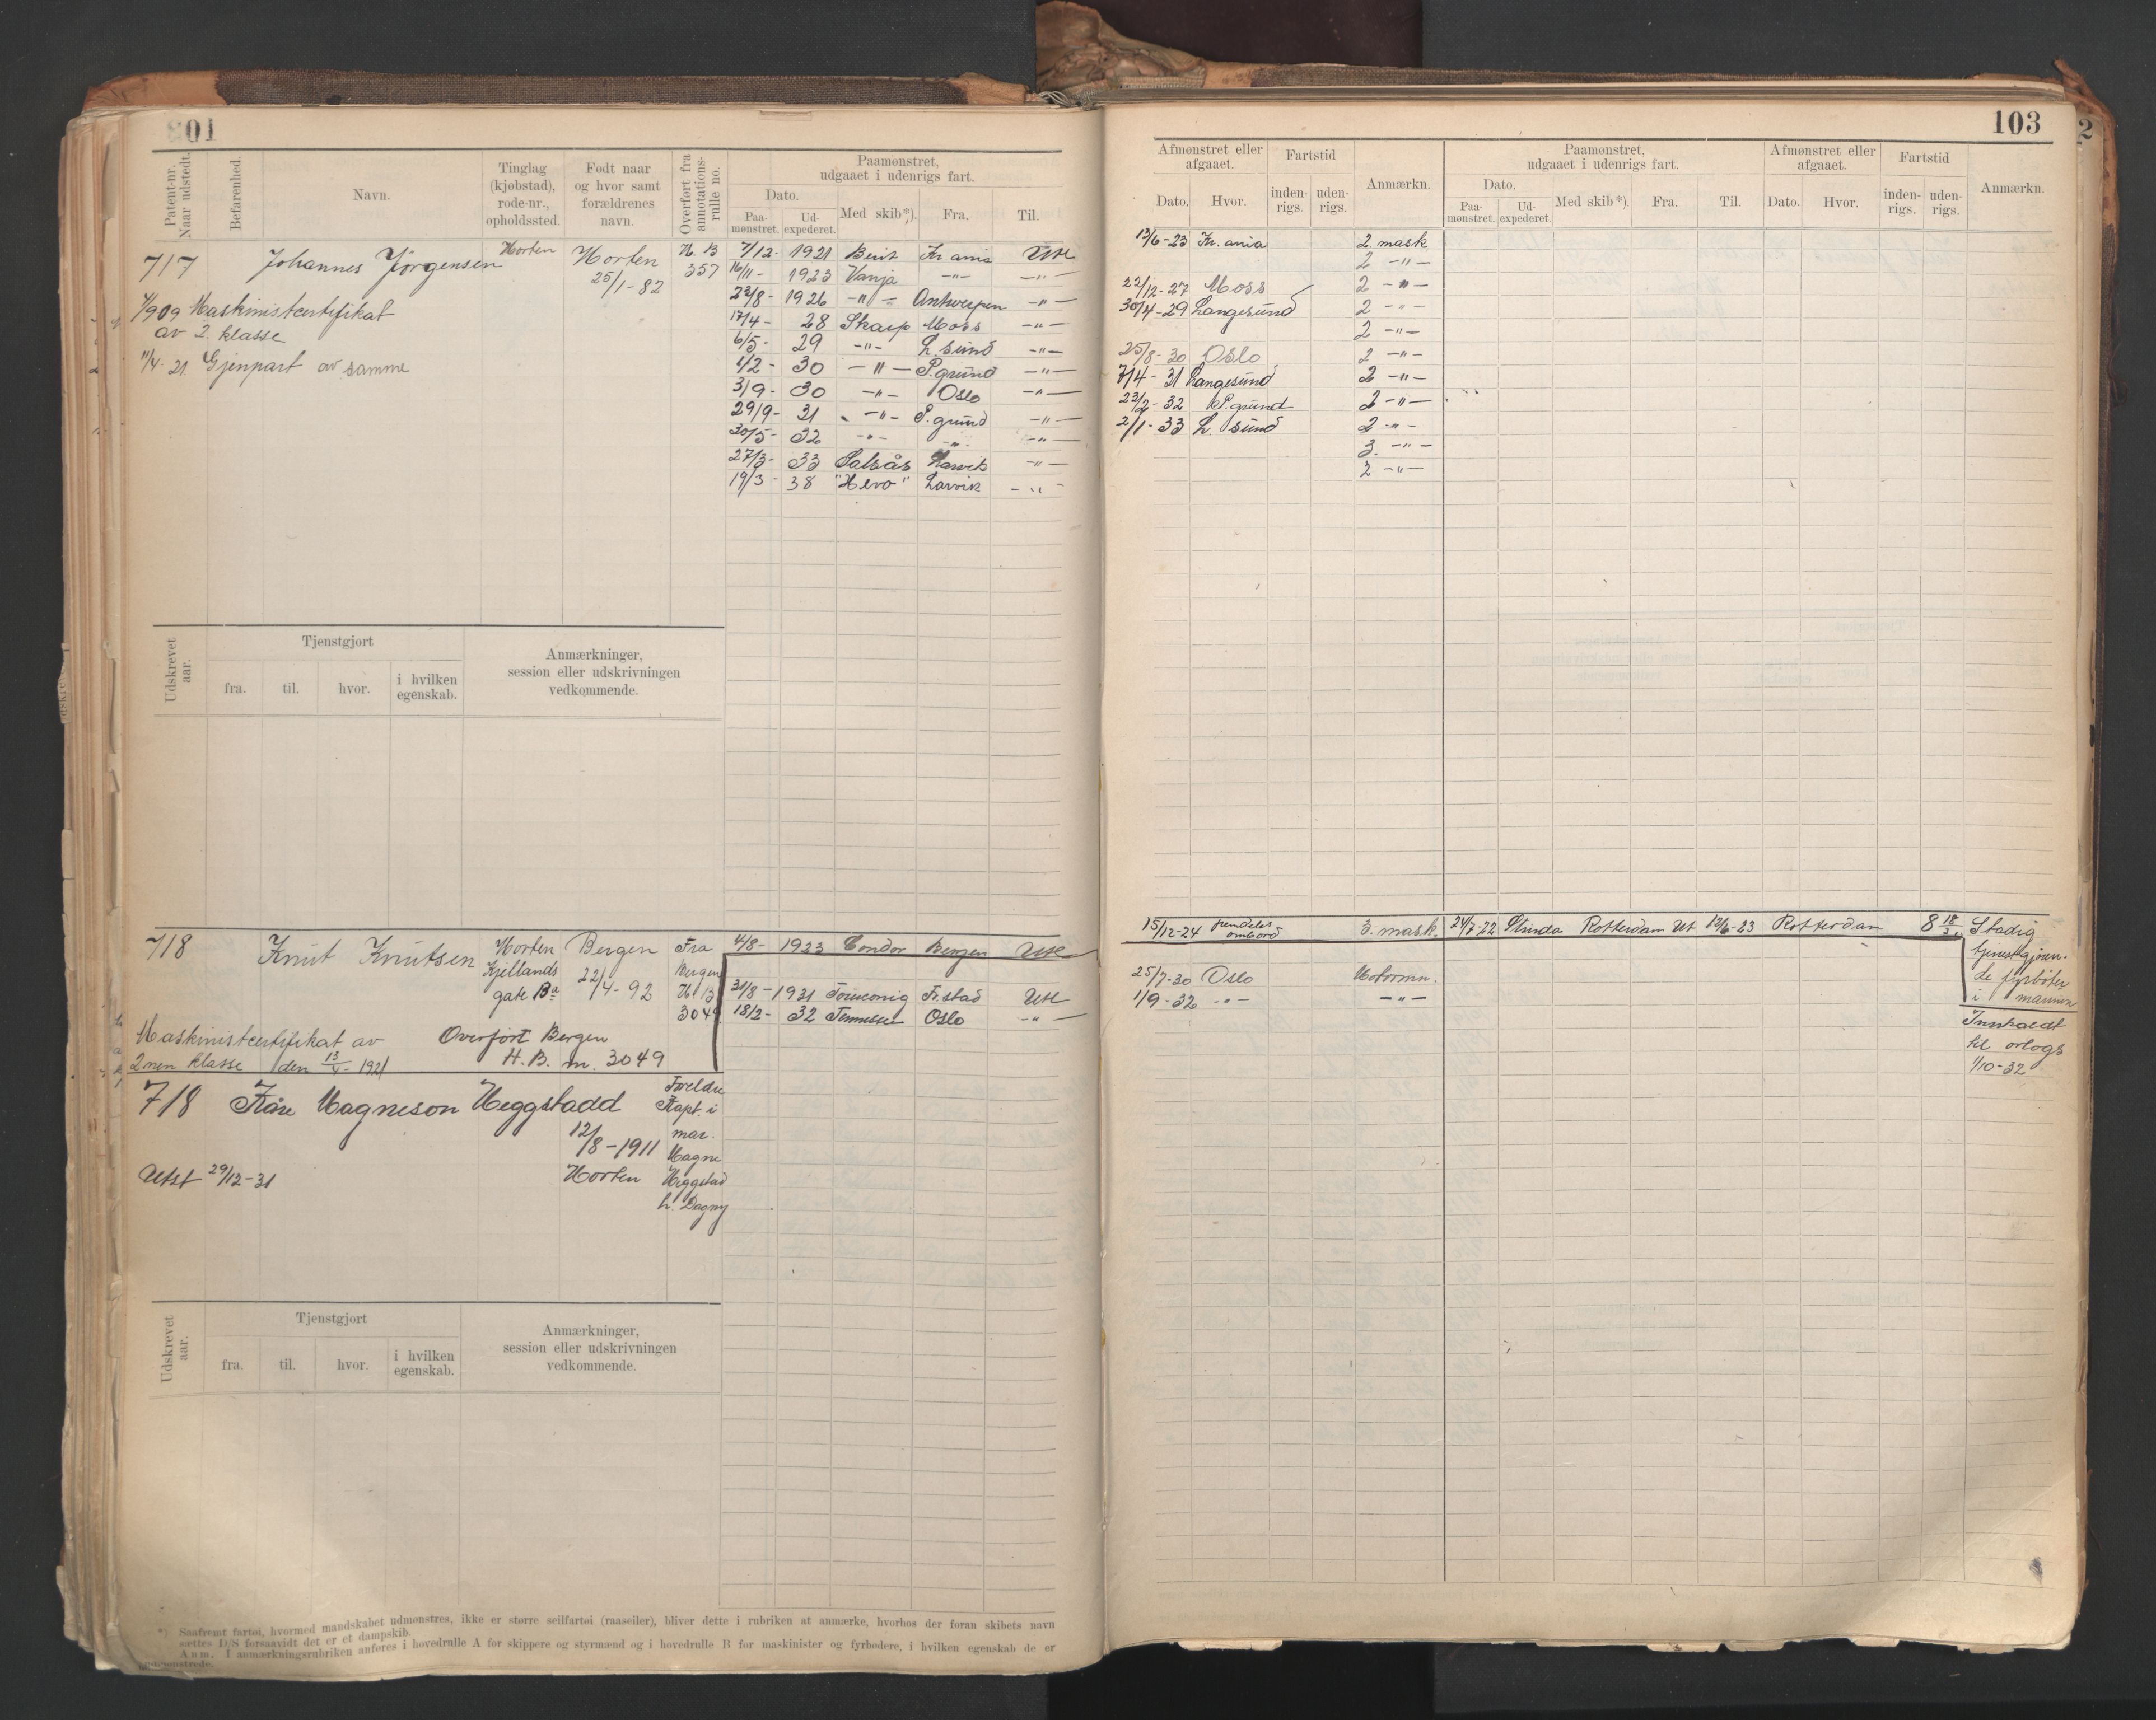 103
Patent-nr. Naar udstedt.
Befarenhed.
Navn.
Tinglag (kjøbstad), rode-nr., opholdssted.
Født naar og hvor samt forældrenes navn.
Overført fra annotations-rulle no.
Paamønstret, udgaaet i udenrigs fart.
Dato.
Paa-mønstret.
Ud-expederet.
Med skib*).
Fra.
Til.
Afmønstret eller afgaaet.
Dato.
Hvor.
Fartstid
inden-rigs.
uden-rigs.
Anmærkn.
Paamønstret, udgaaet i udenrigs fart.
Dato.
Paa-mønstret.
Ud-expederet.
Med skib*).
Fra.
Til.
Afmønstret eller afgaaet.
Dato.
Hvor.
Fartstid
inden-rigs.
uden-rigs.
Anmærkn.
717 Johannes Jørgensen Horten Horten 25/1-82 H. B 357
Maskinistcertifikat
av 2. klasse
11/4-21. Gjenpart av samme
7/12- 1921 Berit Kr ania Ut
16/11- 1923 Vanja -"- -"-
23/8- 1926 -"- Antwerpen -"-
17/4- 28 Skarp Moss -"-
6/5- 29 -"- L. sund -"-
1/2- 30 -"- P. grund -"-
3/9- 30 -"- Oslo -"-
29/9- 31 -"- P. grund -"-
30/5- 32 -"- -"- -"-
27/3- 33 Salsås Larvik -"-
19/3- 38 "Hero" Larvik -"-
13/6-23 Kr. ania 2 mask
2 -"-
22/12-27 Moss 2 -"-
30/4-29 Langesund 2 -"-
2 -"-
25/8-30 Oslo 2 -"-
7/4-31 Langesund 2 -"-
23/2-32 P. grund 2 -"-
2/1-33 L. sund 2 -"-
3. -"-
2 -"-
Udskrevet aar.
Tjenstgjort
fra.
til.
hvor.
i hvilken egenskab.
Anmærkninger, session eller udskrivningen vedkommende.
718 Knut Knutsen Horten Bergen Fra
Kjellands 22/4-92 Bergen
gate H B
3049
Maskinistcertifikat av Overført Bergen
2nen klasse den 1921 H. B. nr. 3049
4/8- 1923 Condor Bergen Ut
31/8- 1931 Fr. stad Ut
18/2- 32 Tennessee Oslo -"-
15/12-24 fremdeles ombord 3. mask.
25/7-30 Oslo Motormn.
1/9-32 -"- -"-
24/7-22 Rotterdam Ut 12/6-23 Rotterdam 8 18 Stadig
tjenestgjøren-
de fyrbøter
i marinen
Innkaldt
til orlogs
1/10-32
718 Kåre Magneson Heggstadd
12/8-1911
Horten
Foreldre
Kapt. i
mar.
Magne
Heggstad
h. Dagny
Utst 29/12-31
Udskrevet aar.
Tjenstgjort
fra.
til.
hvor.
i hvilken egenskab.
Anmærkninger, session eller udskrivningen vedkommende.
*) Saafremt fartøi, hvormed mandskabet udmønstres, ikke er større seilfartøi (raaseiler), bliver dette i rubriken at anmærke, hvorhos der foran skibets navn
sættes D/S forsaavidt det er et dampskib.
Anm. I anmærkningsrubriken anføres i hovedrulle A for skippere og styrmænd og i hovedrulle B for maskinister og fyrbødere, i hvilken egenskab de er